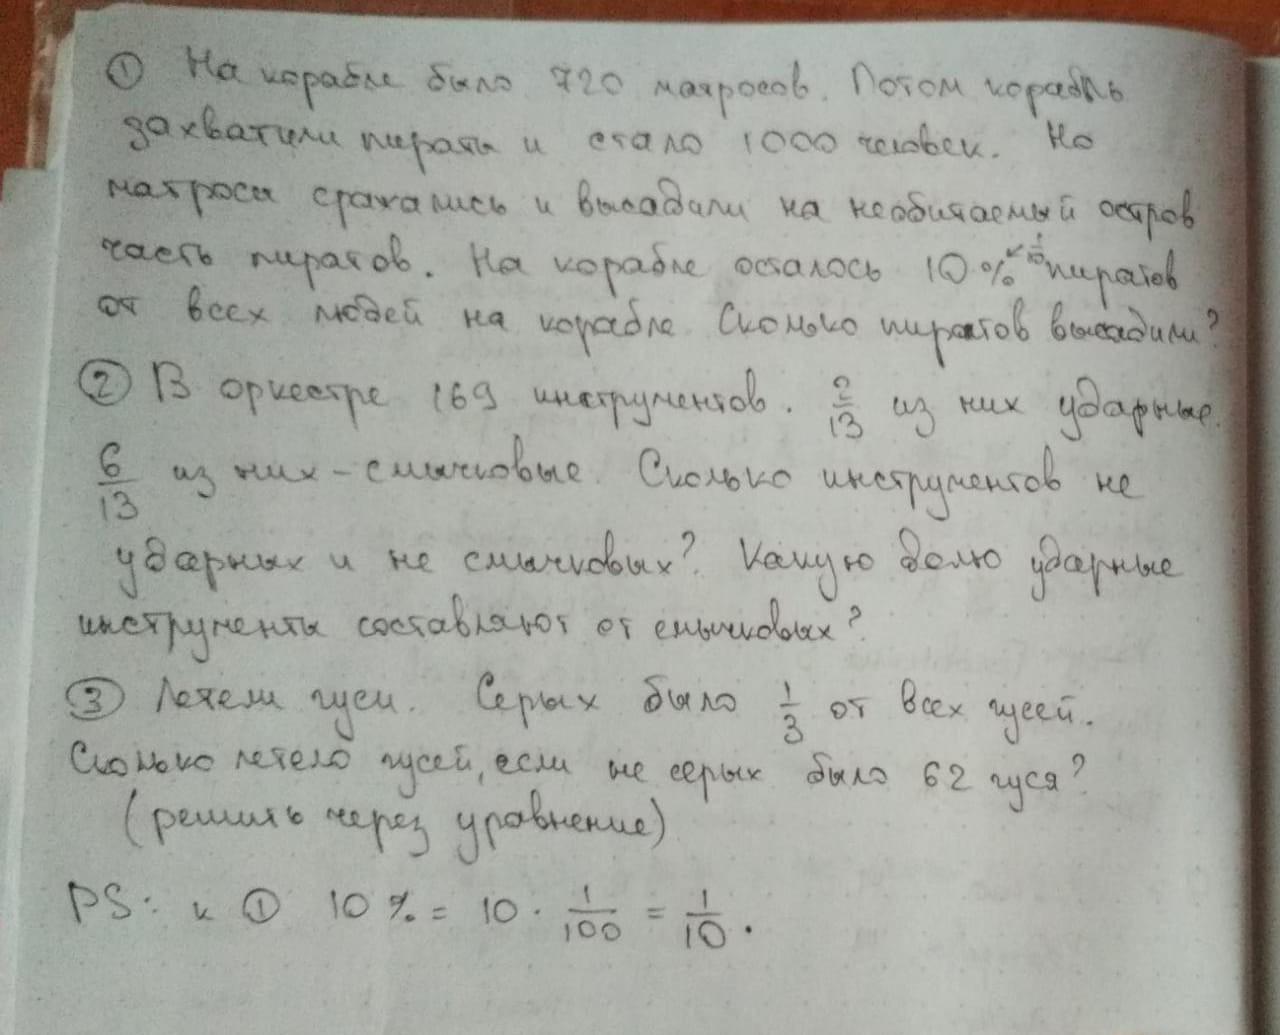 ① На корабле было 720 матросов. Потом корабль
захватили пираты и стало 1000 человек. Но
матросы сражались и высадили на необитаемый остров
часть пиратов. На корабле осталось 10% ↙ 1/10 пиратов
от всех людей на корабле. Сколько пиратов высадили?
② В оркестре 169 инструментов. 2/13 из них ударные.
6/13 из них - смычковые. Сколько инструментов не
ударных и не смычковых? Какую долю ударные
инструменты составляют от смычковых?
③ Летели гуси. Серых было 1/3 от всех гусей.
Сколько летело гусей, если не серых было 62 гуся?
(решить через уравнение)
PS: к ① 10% = 10 · 1/100 = 1/10.